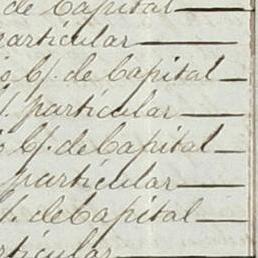 de Capital
particular
Cp. de Capital
particular
Cp. de Capital
particular
de Capital
particular